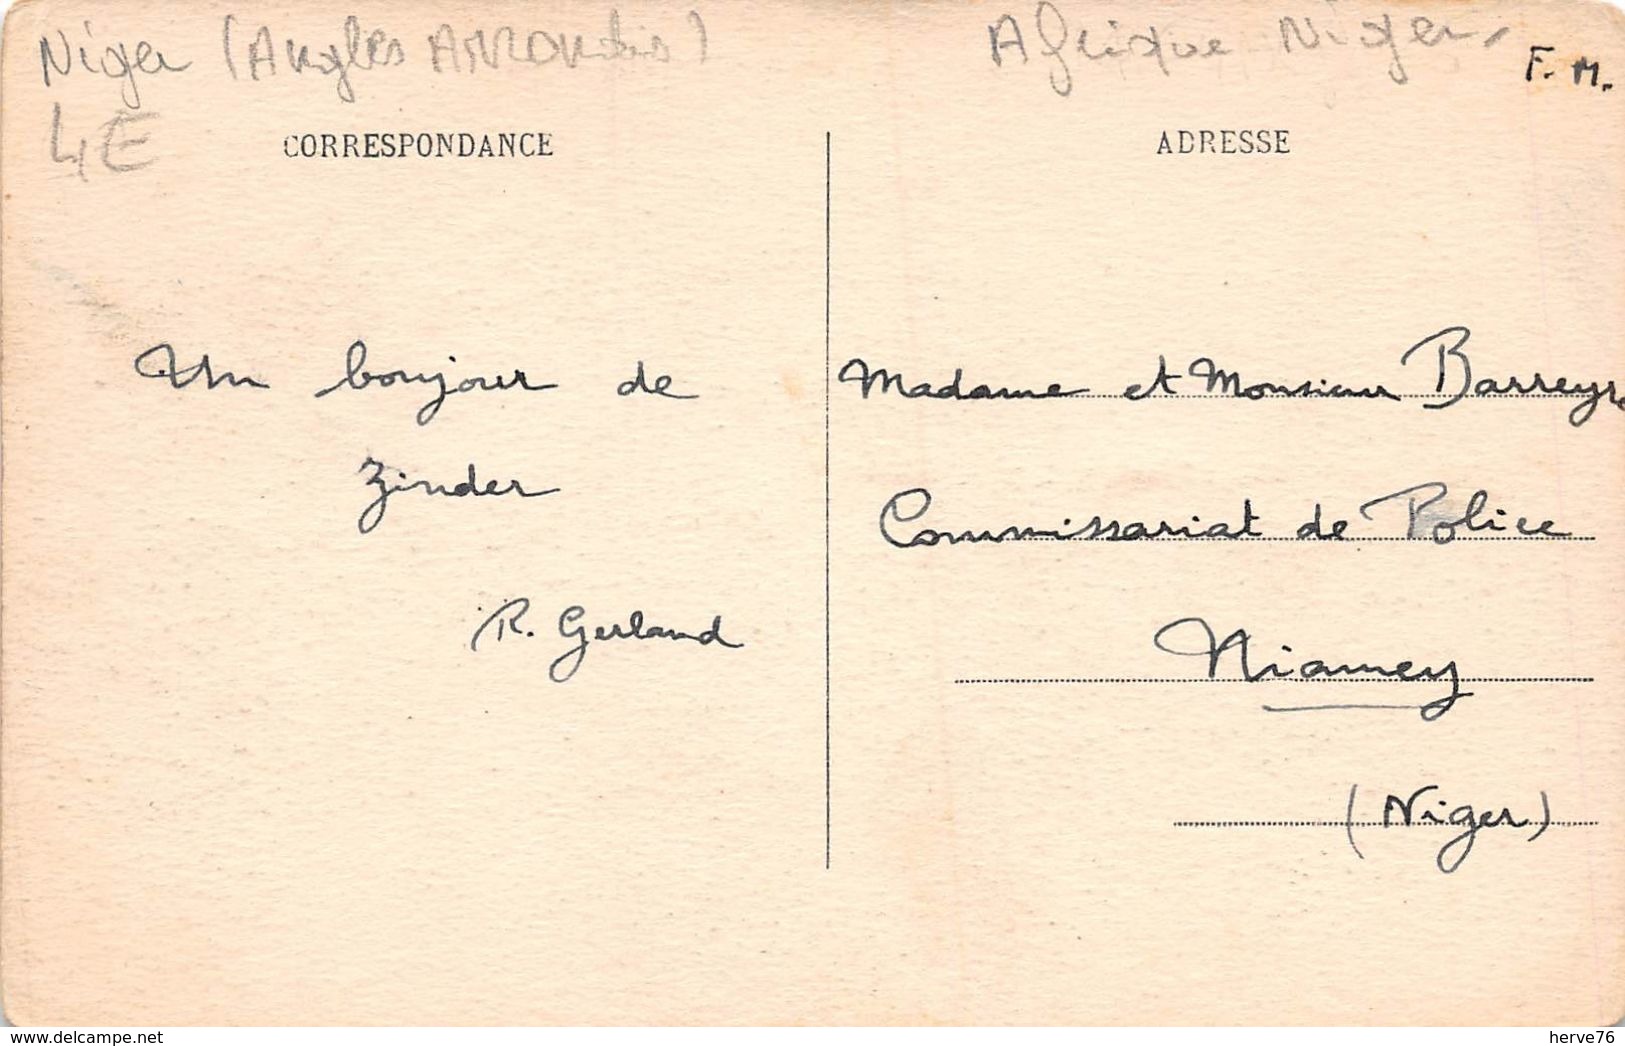 Niger (Angles ARRONdis)
Afrique Niger
F. M.
4E
CORRESPONDANCE
ADRESSE
Un bonjour de
Zinder
R. Gerland
Madame et Monsieur Barreyre
Commissariat de Police
Niamey
(Niger)
www.delcampe.net
herve76